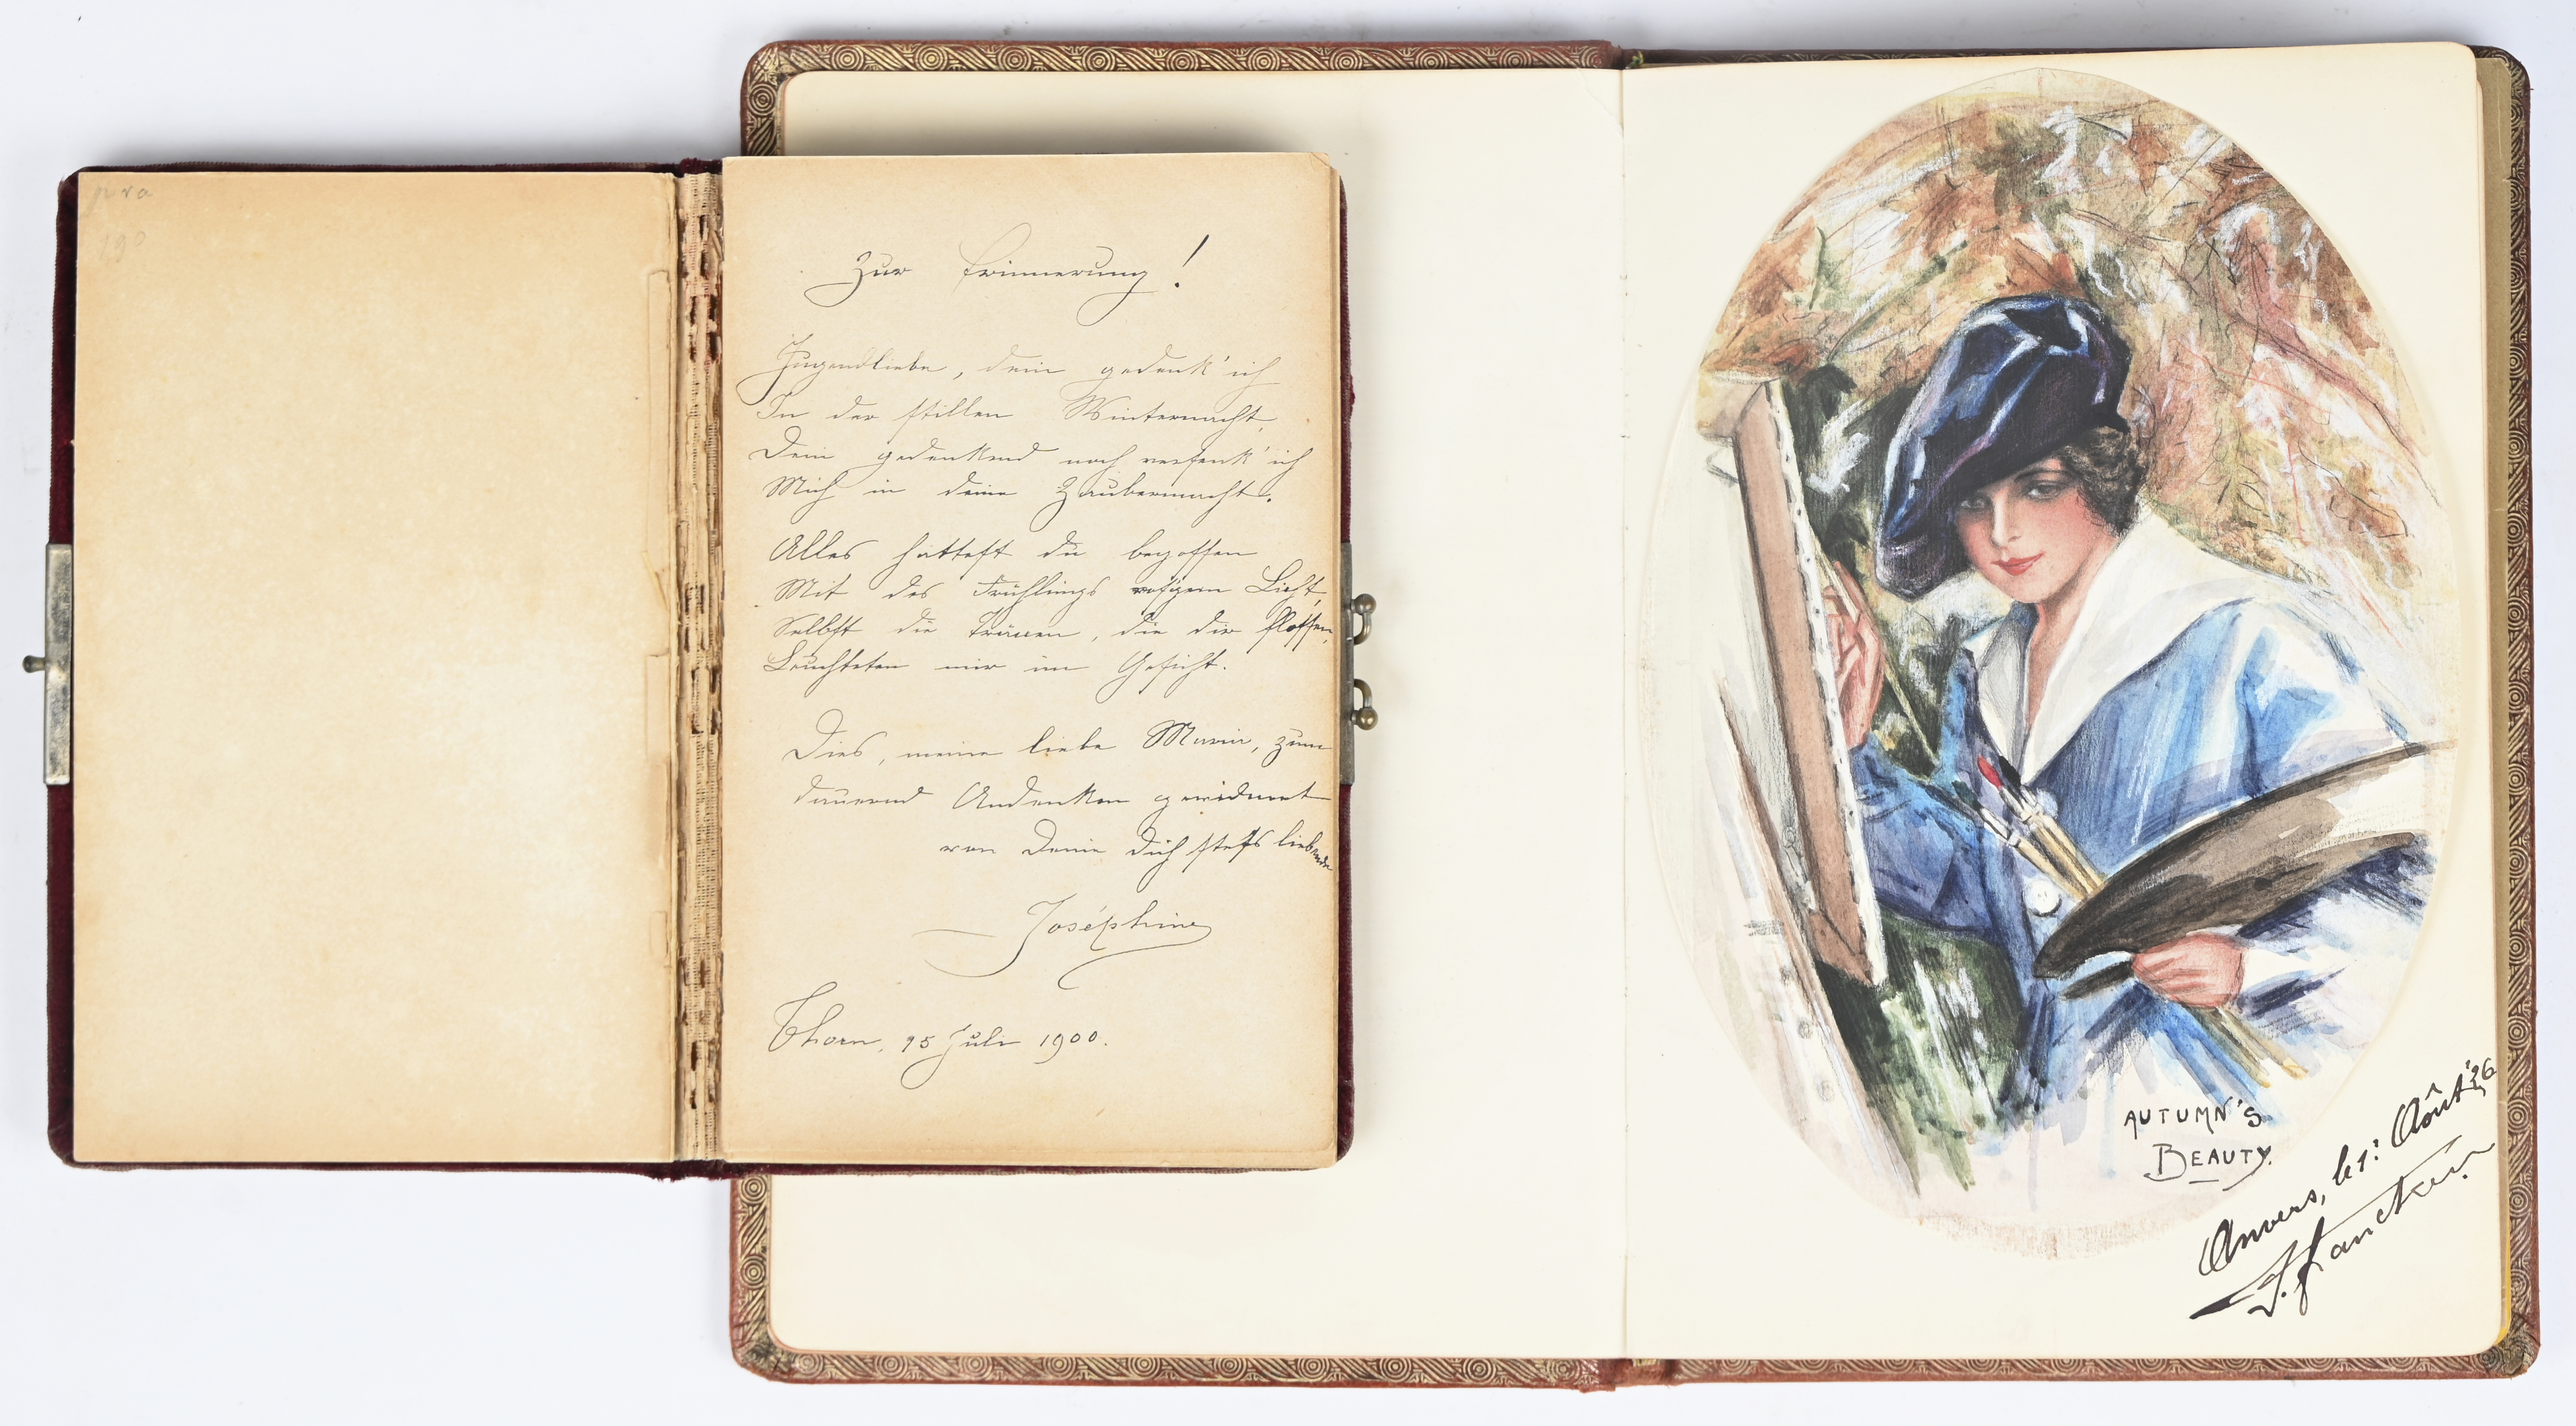 Zur Erinnerung!
Jugendliebe, dein gedenk' ich
In der stillen Winternacht,
Dein gedenkend noch versenk' ich
Mich in deine Zaubermacht.
Alles hattest du begossen
Mit des Frühlings ros'gem Licht,
Selbst die Tränen, die dir flossen,
Leuchteten mir im Gesicht.
Dies, meine liebe Maria, zum
dauernd Andenken gewidmet
von Deine Dich stets liebende
Joséphine
Thorn, 15 Juli 1900.
AUTUMN'S
BEAUTY.
Anvers, le 1: Août '26